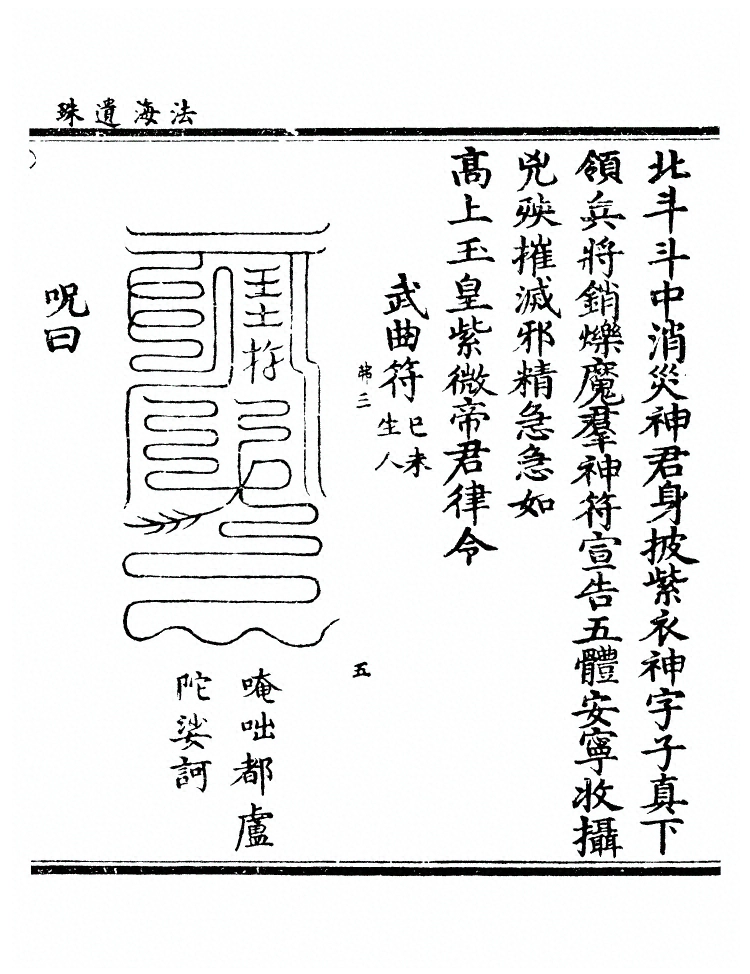 法海遺珠
北斗斗中消災神君身披紫衣神字子真下
領兵將銷爍魔羣神符宣告五體安寧收攝
兇殃摧滅邪精急急如
高上玉皇紫微帝君律令
武曲符
巳未
生人
三
五
唵咄都盧
陀娑訶
呪曰